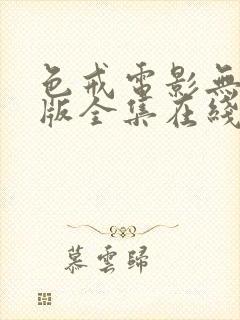 色戒電影無
版全集在綫
慕雲歸